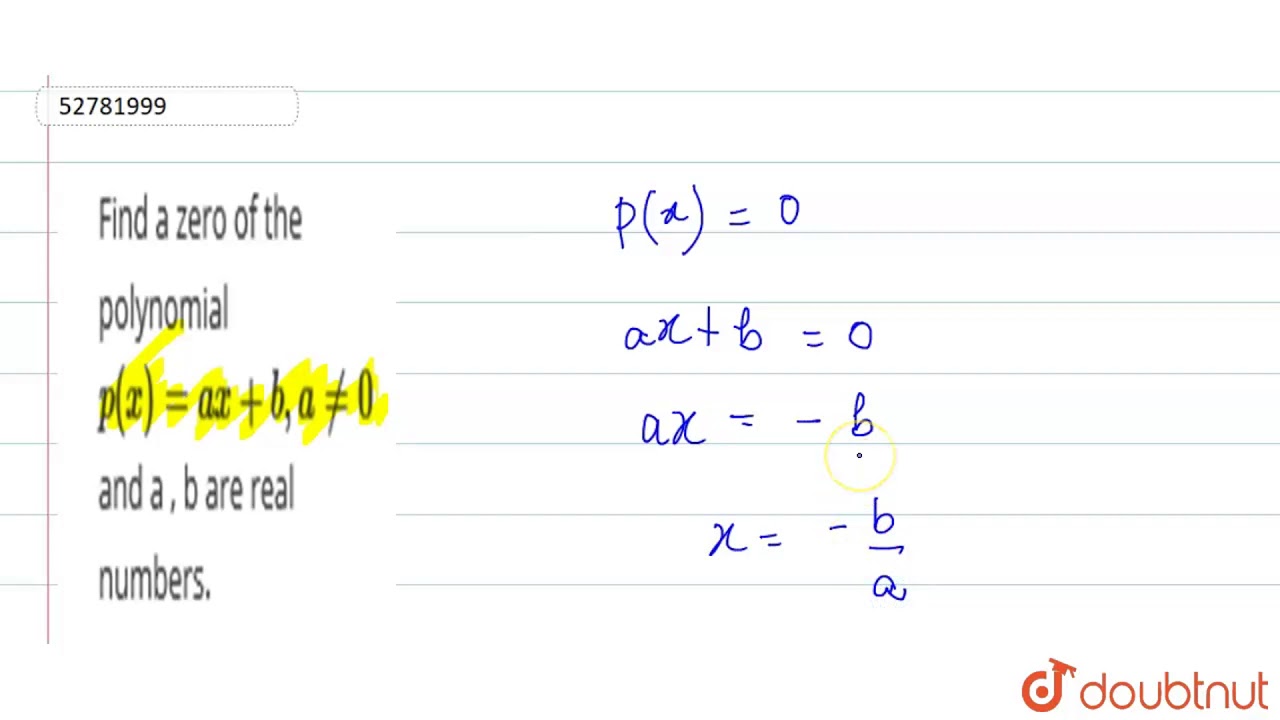 52781999
Find a zero of the
polynomial
p(x) = ax + b, a ≠ 0
and a , b are real
numbers.
p(x) = 0
ax + b = 0
ax = - b
x = - b/a
doubtnut